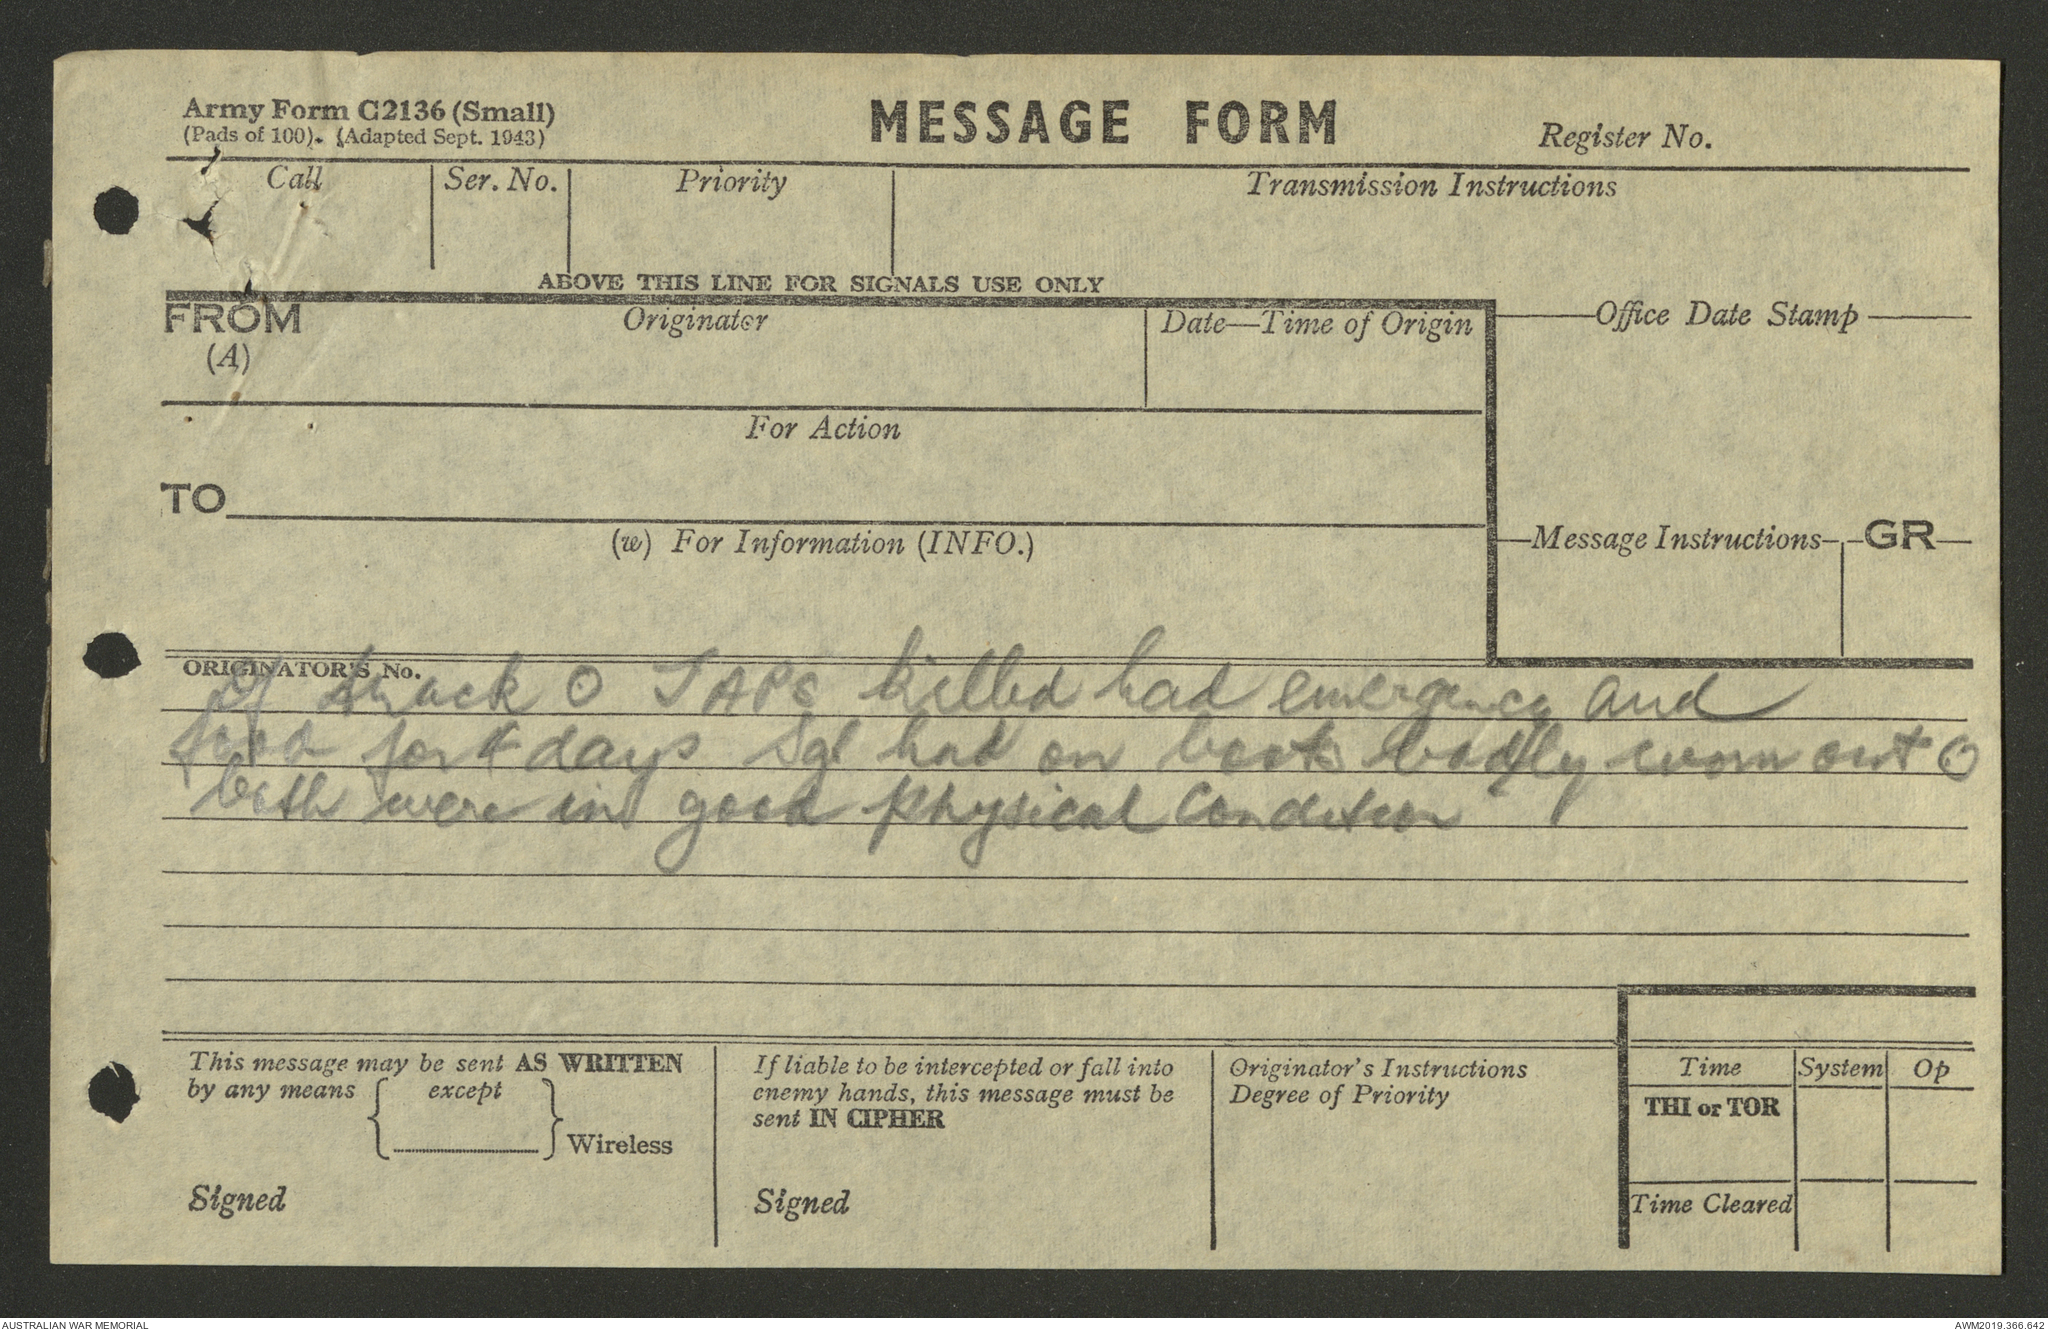 Army Form C2136 (Small)
(Pads of 100). (Adapted Sept. 1943)
MESSAGE FORM
Register No.
Call
Ser. No.
Priority
Transmission Instructions
ABOVE THIS LINE FOR SIGNALS USE ONLY
FROM
(A)
Originator
Date—Time of Origin
Office Date Stamp
For Action
TO
(w) For Information (INFO.)
Message Instructions
GR
ORIGINATOR'S No.
of track O JAPS killed had emergency and
food for 4 days Sgt had on boots badly worn out O
both were in good physical condition
This message may be sent AS WRITTEN
by any means
except
Wireless
Signed
If liable to be intercepted or fall into
enemy hands, this message must be
sent IN CIPHER
Signed
Originator's Instructions
Degree of Priority
Time
System
Op
THI or TOR
Time Cleared
AUSTRALIAN WAR MEMORIAL
AWM2019.366.642